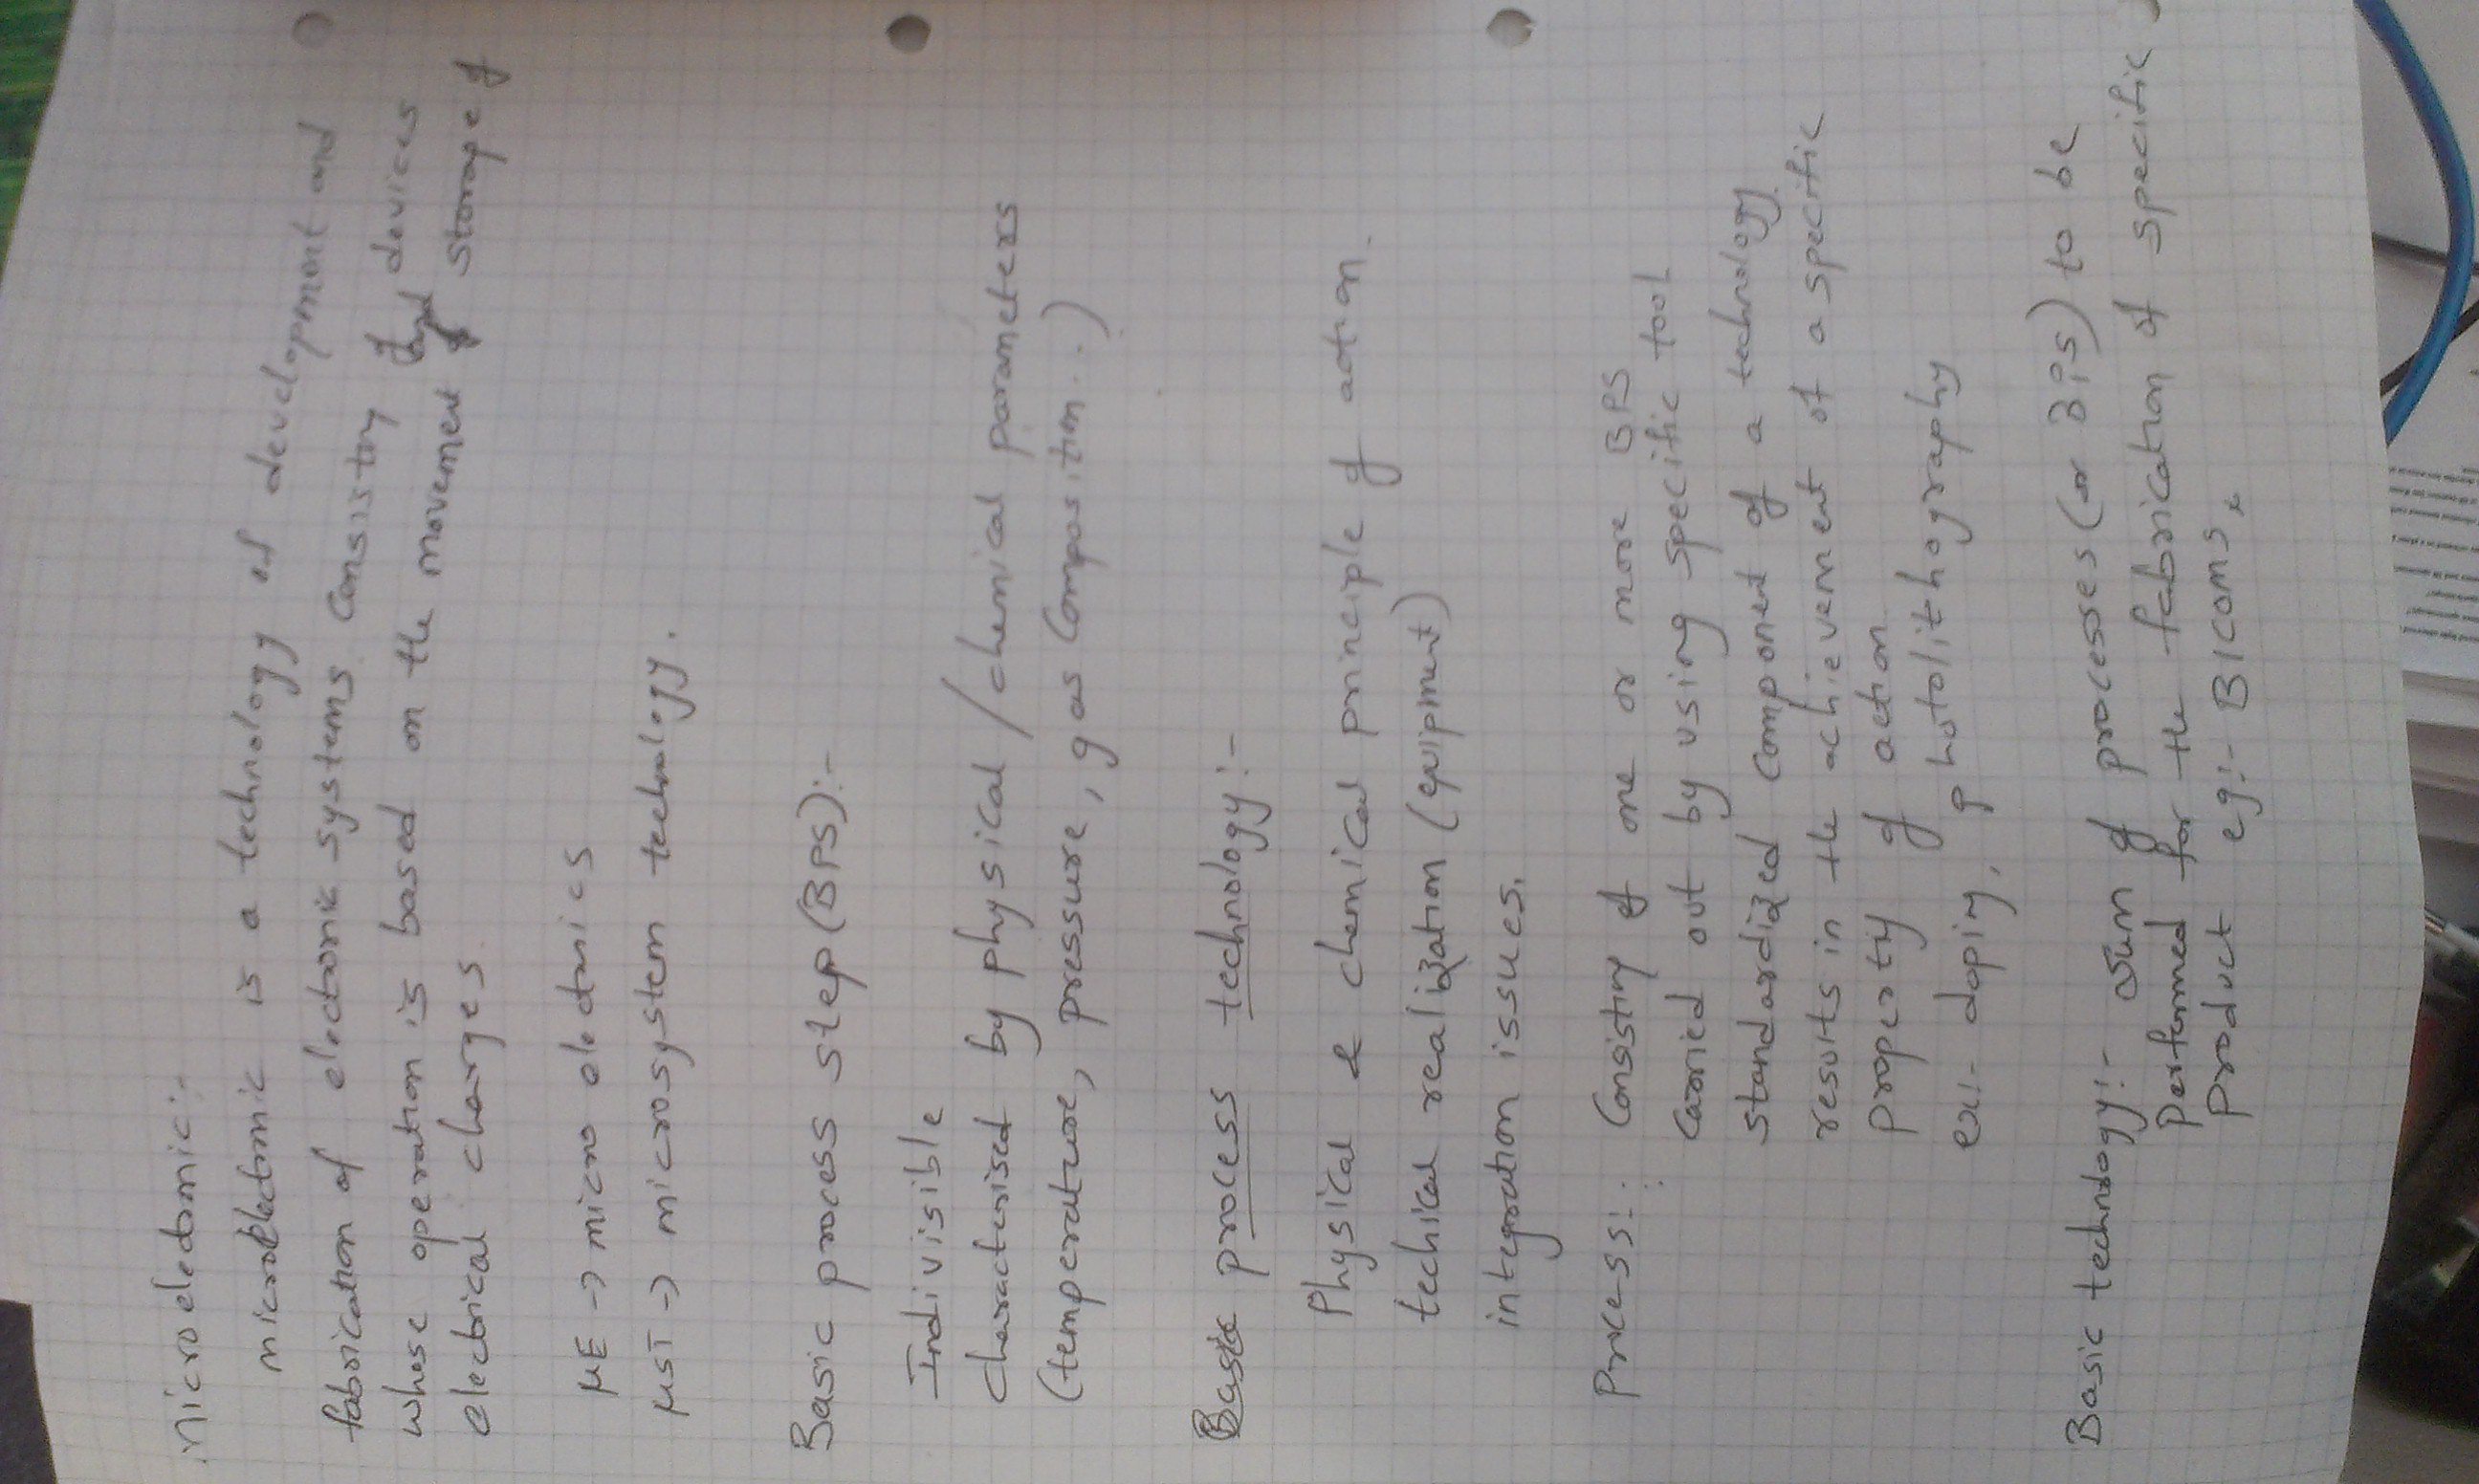 Microelectronic:-
microelectronic is a technology of development and
fabrication of electronic systems Consisting of devices
whose operation is based on the movement & storage of
electrical charges
µE → micro electronics
µST → microsystem technology.
Basic process step (BPS):-
Indivisible
characterised by physical/chemical parameters
(temperature, pressure, gas Composition..)
Basic process technology:-
Physical & chemical principle of action.
techical realization (equipment)
integration issues.
Process:- Consisting of one or more BPS
carried out by using specific tool
standardized component of a technology
results in the achievement of a specific
property of action
ex:- doping, photolithography
Basic technology:- sum of processes (or BPS) to be
Performed for the fabrication of specific
product eg:- BICOMS,